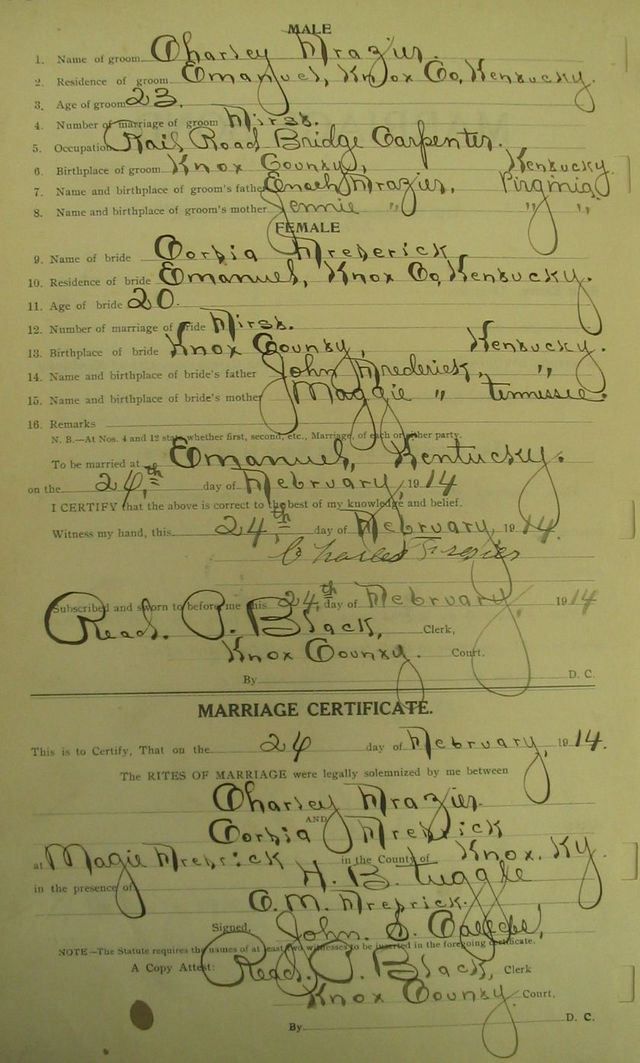 MALE
1. Name of groom Charley Frazier.
2. Residence of groom Emanuel, Knox Co, Kentucky.
3. Age of groom 23.
4. Number of marriage of groom First.
5. Occupation Rail Road Bridge Carpenter.
6. Birthplace of groom Knox County, Kentucky.
7. Name and birthplace of groom's father Enoch Frazier, Virginia
8. Name and birthplace of groom's mother Jennie " " "
FEMALE
9. Name of bride Frederick
10. Residence of bride Emanuel, Knox Co, Kentucky.
11. Age of bride 20.
12. Number of marriage of bride First.
13. Birthplace of bride Knox County, Kentucky.
14. Name and birthplace of bride's father John Frederick, "
15. Name and birthplace of bride's mother Maggie " Tennissee.
16. Remarks
N. B.—At Nos. 4 and 12 state whether first, second, etc., Marriage, of each or either party.
To be married at Emanuel, Kentucky.
on the 24,th day of February, 1914
I CERTIFY that the above is correct to the best of my knowledge and belief.
Witness my hand, this 24,th day of February, 1914.
Charles Frazier
Subscribed and sworn to before me this 24,th day of February, 1914
Read. P. Black, Clerk,
Knox County. Court.
By D. C.
MARRIAGE CERTIFICATE.
This is to Certify, That on the 24 day of February, 1914.
The RITES OF MARRIAGE were legally solemnized by me between
Charley Frazier.
AND
Fredrick
at Magie Fredrick in the County of Knox. Ky.
in the presence of H. B. Tuggle
C. M. Fredrick.
Signed, John. S.
NOTE—The Statute requires the names of at least two witnesses to be inserted in the foregoing certificate.
A Copy Attest: Read. P. Black, Clerk
Knox County. Court,
By D. C.